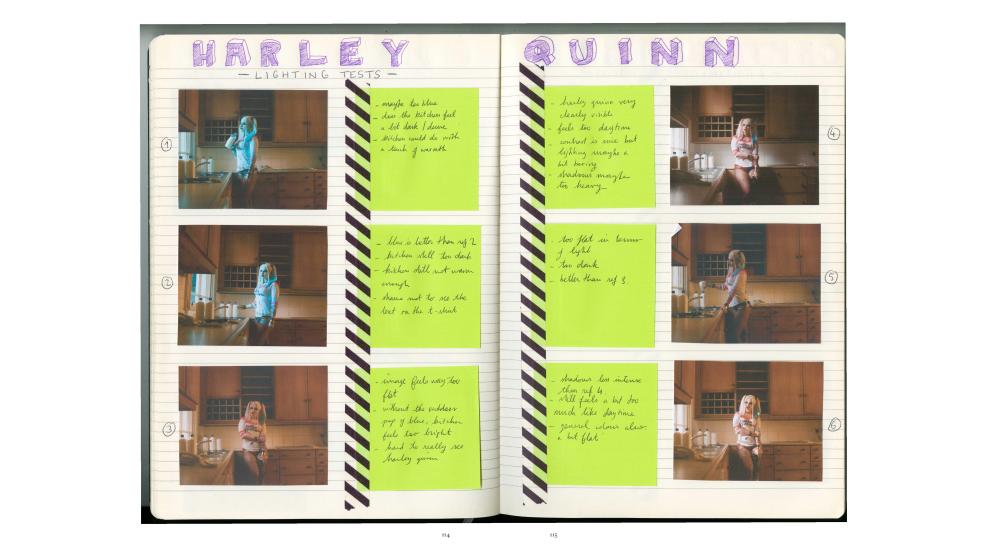 HARLEY QUINN
— LIGHTING TESTS —
1
- maybe too blue
- does the kitchen feel
a bit dark / dense
- kitchen could do with
a touch of warmth
2
- blue is better than ref 1
- kitchen still too dark
- kitchen still not warm
enough
- shame not to see the
text on the t-shirt
3
- image feels way too
flat
- without the outdoor
pop of blue, kitchen
feels too bright
- hard to really see
harley quinn
4
- harley quinn very
clearly visible
- feels too daytime
- contrast is nice but
lighting maybe a
bit boring
- shadows maybe
too heavy
5
- too flat in terms
of light
- too dark
- better than ref 3.
6
- shadows less intense
than ref 4
- still feels a bit too
much like daytime
- general colours also
a bit flat
114
115